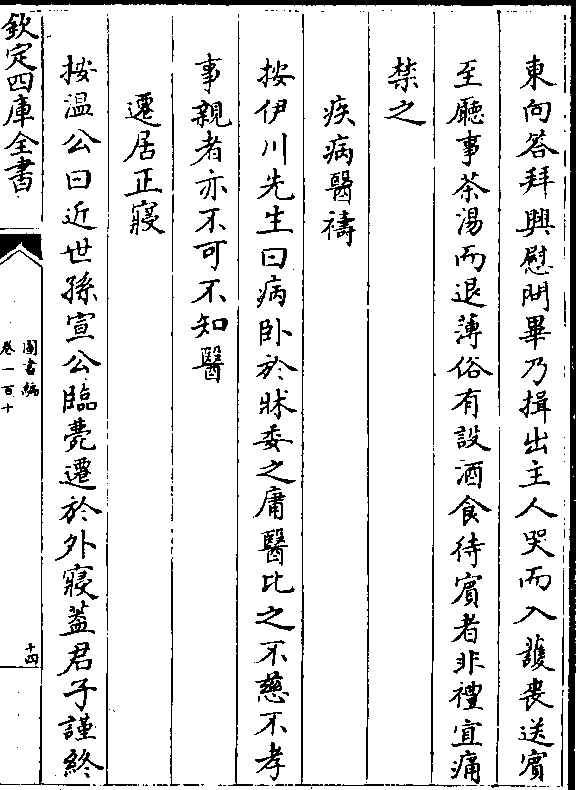 東向答拜興慰問畢乃揖出主人哭而入護喪送賓
至廳事茶湯而退薄俗有設酒食待賓者非禮宜痛
禁之
疾病醫禱
按伊川先生曰病卧於牀委之庸醫比之不慈不孝
事親者亦不可不知醫
遷居正寢
按温公曰近世孫宣公臨薨遷於外寢葢君子謹終
欽定四庫全書
圖書編
卷一百十
十四